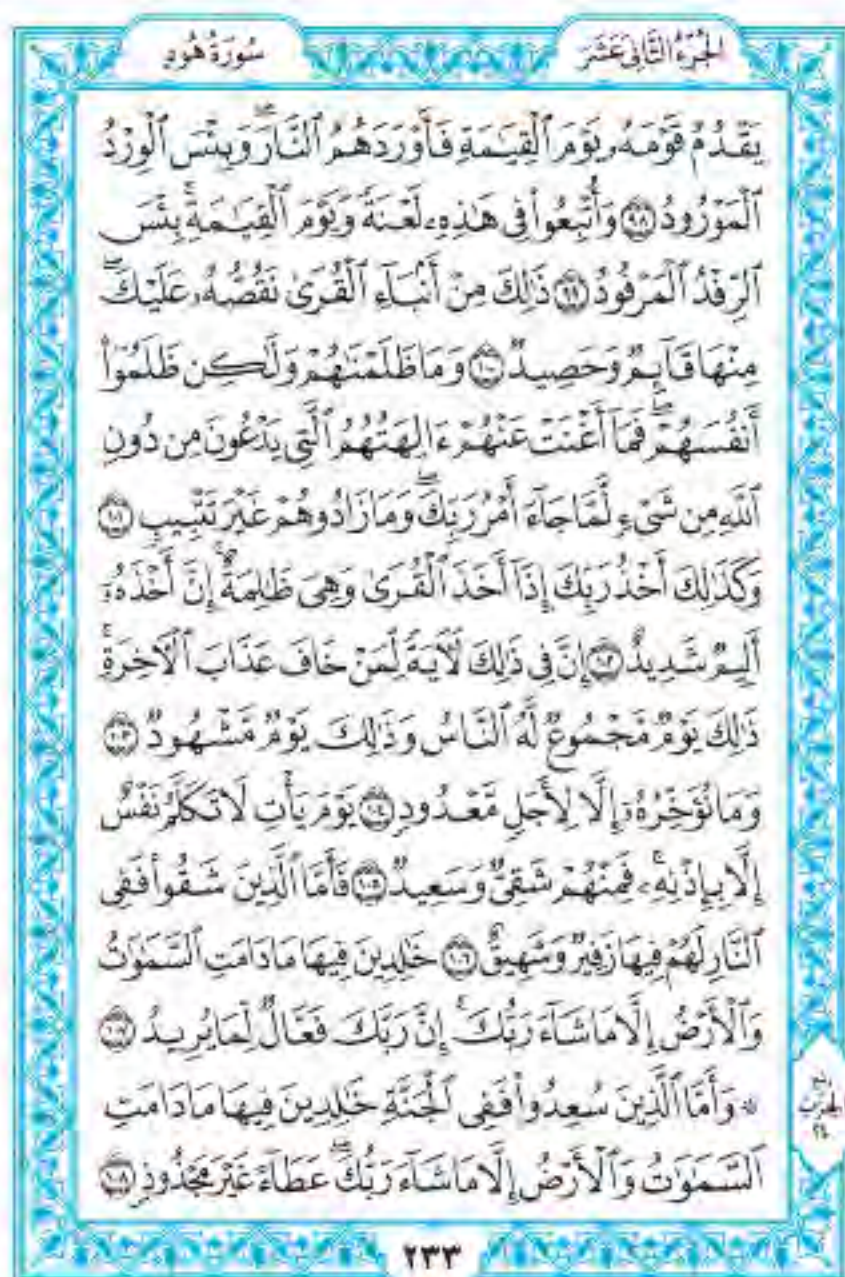 الجزء الثاني عشر
سورة هود
يَقْدُمُ قَوْمَهُۥ يَوْمَ ٱلْقِيَـٰمَةِ فَأَوْرَدَهُمُ ٱلنَّارَ ۖ وَبِئْسَ ٱلْوِرْدُ
ٱلْمَوْرُودُ ٩٨ وَأُتْبِعُوا۟ فِى هَـٰذِهِۦ لَعْنَةً وَيَوْمَ ٱلْقِيَـٰمَةِ ۚ بِئْسَ
ٱلرِّفْدُ ٱلْمَرْفُودُ ٩٩ ذَٰلِكَ مِنْ أَنۢبَآءِ ٱلْقُرَىٰ نَقُصُّهُۥ عَلَيْكَ ۖ
مِنْهَا قَآئِمٌ وَحَصِيدٌ ١٠٠ وَمَا ظَلَمْنَـٰهُمْ وَلَـٰكِن ظَلَمُوٓا۟
أَنفُسَهُمْ ۖ فَمَآ أَغْنَتْ عَنْهُمْ ءَالِهَتُهُمُ ٱلَّتِى يَدْعُونَ مِن دُونِ
ٱللَّهِ مِن شَىْءٍ لَّمَّا جَآءَ أَمْرُ رَبِّكَ ۖ وَمَا زَادُوهُمْ غَيْرَ تَتْبِيبٍ ١٠١
وَكَذَٰلِكَ أَخْذُ رَبِّكَ إِذَآ أَخَذَ ٱلْقُرَىٰ وَهِىَ ظَـٰلِمَةٌ ۚ إِنَّ أَخْذَهُۥٓ
أَلِيمٌ شَدِيدٌ ١٠٢ إِنَّ فِى ذَٰلِكَ لَـَٔايَةً لِّمَنْ خَافَ عَذَابَ ٱلْـَٔاخِرَةِ ۚ
ذَٰلِكَ يَوْمٌ مَّجْمُوعٌ لَّهُ ٱلنَّاسُ وَذَٰلِكَ يَوْمٌ مَّشْهُودٌ ١٠٣
وَمَا نُؤَخِّرُهُۥٓ إِلَّا لِأَجَلٍ مَّعْدُودٍ ١٠٤ يَوْمَ يَأْتِ لَا تَكَلَّمُ نَفْسٌ
إِلَّا بِإِذْنِهِۦ ۚ فَمِنْهُمْ شَقِىٌّ وَسَعِيدٌ ١٠٥ فَأَمَّا ٱلَّذِينَ شَقُوا۟ فَفِى
ٱلنَّارِ لَهُمْ فِيهَا زَفِيرٌ وَشَهِيقٌ ١٠٦ خَـٰلِدِينَ فِيهَا مَا دَامَتِ ٱلسَّمَـٰوَٰتُ
وَٱلْأَرْضُ إِلَّا مَا شَآءَ رَبُّكَ ۚ إِنَّ رَبَّكَ فَعَّالٌ لِّمَا يُرِيدُ ١٠٧
۞ وَأَمَّا ٱلَّذِينَ سُعِدُوا۟ فَفِى ٱلْجَنَّةِ خَـٰلِدِينَ فِيهَا مَا دَامَتِ
ٱلسَّمَـٰوَٰتُ وَٱلْأَرْضُ إِلَّا مَا شَآءَ رَبُّكَ ۖ عَطَآءً غَيْرَ مَجْذُوذٍ ١٠٨
ربع
الحزب
٢٤
٢٣٣